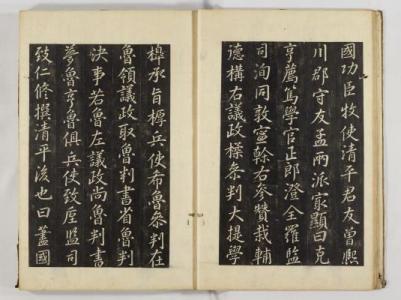 國功臣牧使清平君友曾熈
川郡守友孟兩派家顯曰克
亨薦篤學官正郎澄全羅監
司洵同敦宣榦右參贊栽輔
德構右議政橾叅判大提學
㮨承旨樽兵使希魯叅判在
魯領議政取魯判書省魯判
決事若魯左議政尚魯判書
夢魯亨魯俱兵使致垕監司
致仁修撰清平後也曰藎國